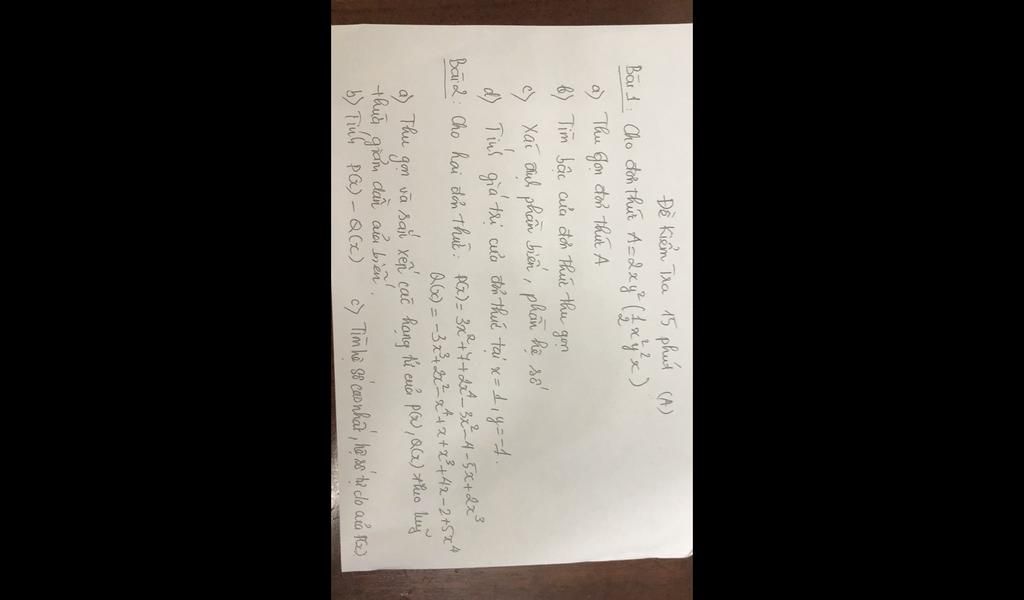 Đề Kiểm Tra 15 phút (A)
Bài 1: Cho đơn thức A = 2xy²(½x²y²x)
a) Thu gọn đơn thức A
b) Tìm bậc của đơn thức thu gọn
c) Xác định phần biến, phần hệ số
d) Tính giá trị của đơn thức tại x = 1, y = -1.
Bài 2: Cho hai đơn thức: P(x) = 3x² + 7 + 2x⁴ - 3x² - 4 - 5x + 2x³
Q(x) = -3x³ + 2x² - x⁴ + x + x³ + 4x - 2 + 5x⁴
a) Thu gọn và sắp xếp các hạng tử của P(x), Q(x) theo luỹ
thừa giảm dần của biến.
b) Tính P(x) - Q(x) c) Tìm hệ số cao nhất, hệ số tự do của P(x)